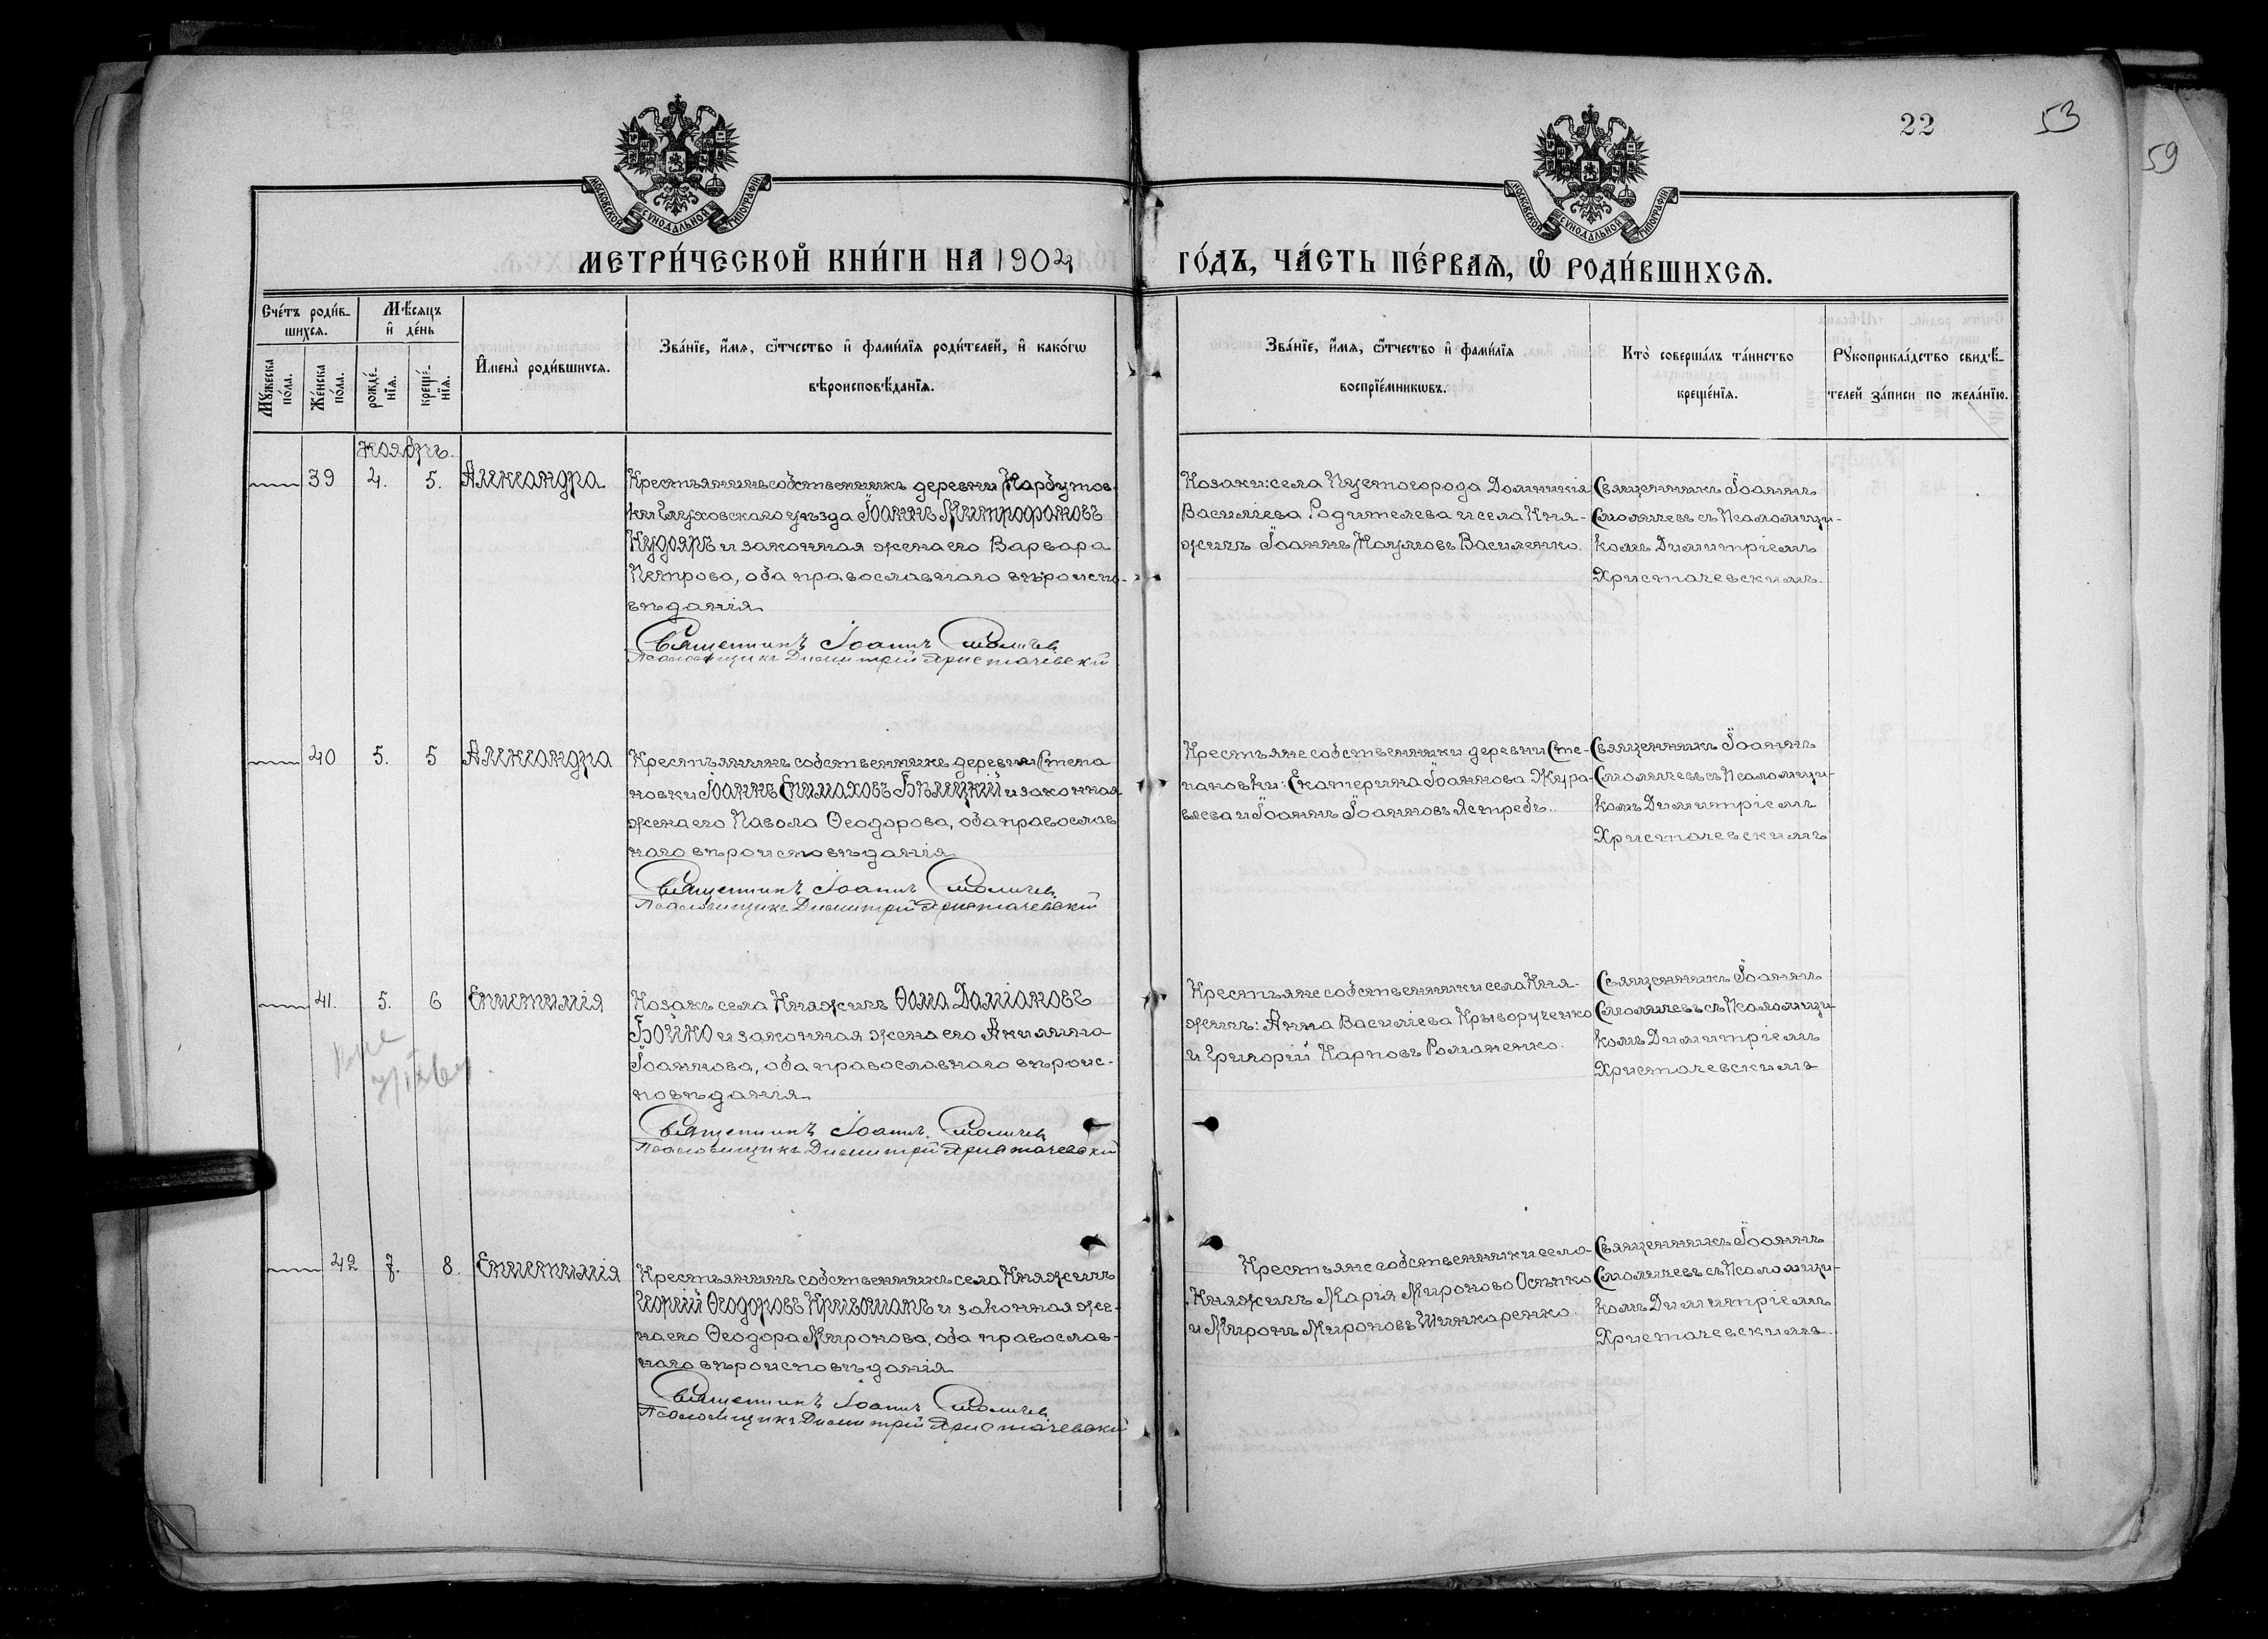 22
53
59
МОСКОВСКОЙ СѴНОДАЛЬНОЙ ТИПОГРАФІИ
МОСКОВСКОЙ СѴНОДАЛЬНОЙ ТИПОГРАФІИ
МЕТРИ́ЧЕСКОЙ КНИ́ГИ НА 1904 ГО́ДЪ, ЧА́СТЬ ПЕ́РВАѦ, Ѽ РОДИ́ВШИХСѦ.
Сче́тъ роди́в-
шихся.
Мꙋ́жеска по́ла.
Же́нска по́ла.
Мѣ́сяцъ
и҆ де́нь
рожде́-
нїя.
креще́-
нїя.
И҆мена̀ роди́вшихся.
Зва́нїе, и҆́мя, ѻ҆́тчество и҆ фами́лїя роди́телей, и҆ како́гѡ
вѣроисповѣ́данїя.
Зва́нїе, и҆́мя, ѻ҆́тчество и҆ фами́лїя
воспрїе́мникѡвъ.
Кто̀ соверша́лъ та́инство
креще́нїя.
Рꙋкоприкла́дство свидѣ́-
телей за́писи по жела́нїю.
Ноябрь.
39 4. 5. Александра
Крестьянинъ собственникъ деревни Нарбутов-
ки Глуховскаго уѣзда Іоаннъ Митрофановъ
Кудояръ и законная жена его Варвара
Петрова, оба православнаго вѣроиспо-
вѣданія
Священникъ Іоаннъ Смоличевъ
Псаломщикъ Димитрій Христачевскій
Козаки: села Пустогорода Домникія
Василіева Родителева и села Кня-
жичъ Іоаннъ Наумовъ Василенко.
Священникъ Іоаннъ
Смоличевъ съ Псаломщи-
комъ Димитріемъ
Христачевскимъ.
40 5. 5 Александра
Крестьянинъ собственникъ деревни Степа
новки Іоаннъ Епимаховъ Бѣлицкій и законная
жена его Павола Ѳеодорова, оба православ
наго вѣроисповѣданія
Священникъ Іоаннъ Смоличевъ
Псаломщикъ Димитрій Христачевскій
Крестьяне собственники деревни Сте-
пановки: Екатерина Іоаннова Жура-
влева и Іоаннъ Іоанновъ Ястребъ.
Священникъ Іоаннъ
Смоличевъ съ Псаломщи-
комъ Димитріемъ
Христачевскимъ
41. 5. 6 Епистимія
Козакъ села Княжичъ Ѳома Даміановъ
Бойко и законная жена его Акилина
Іоаннова, оба православнаго вѣроис-
повѣданія
Священникъ Іоаннъ Смоличевъ
Псаломщикъ Димитрій Христачевскій
Крестьяне собственники села Кня-
жичъ: Анна Василіева Крыворученко
и Григорій Карповъ Романенко.
Священникъ Іоаннъ
Смоличевъ съ Псаломщи-
комъ Димитріемъ
Христачевскимъ
42 7. 8. Епистимія
Крестьянинъ собственникъ села Княжичъ
Георгій Ѳеодоровъ Кривошапъ и законная же-
на его Ѳеодора Миронова, оба православ-
наго вѣроисповѣданія
Священникъ Іоаннъ Смоличевъ
Псаломщикъ Димитрій Христачевскій
Крестьяне собственники села-
Княжичъ Марія Миронова Осѣпко
и Миронъ Мироновъ Шинкаренко.
Священникъ Іоаннъ
Смоличевъ съ Псаломщи-
комъ Димитріемъ
Христачевскимъ.